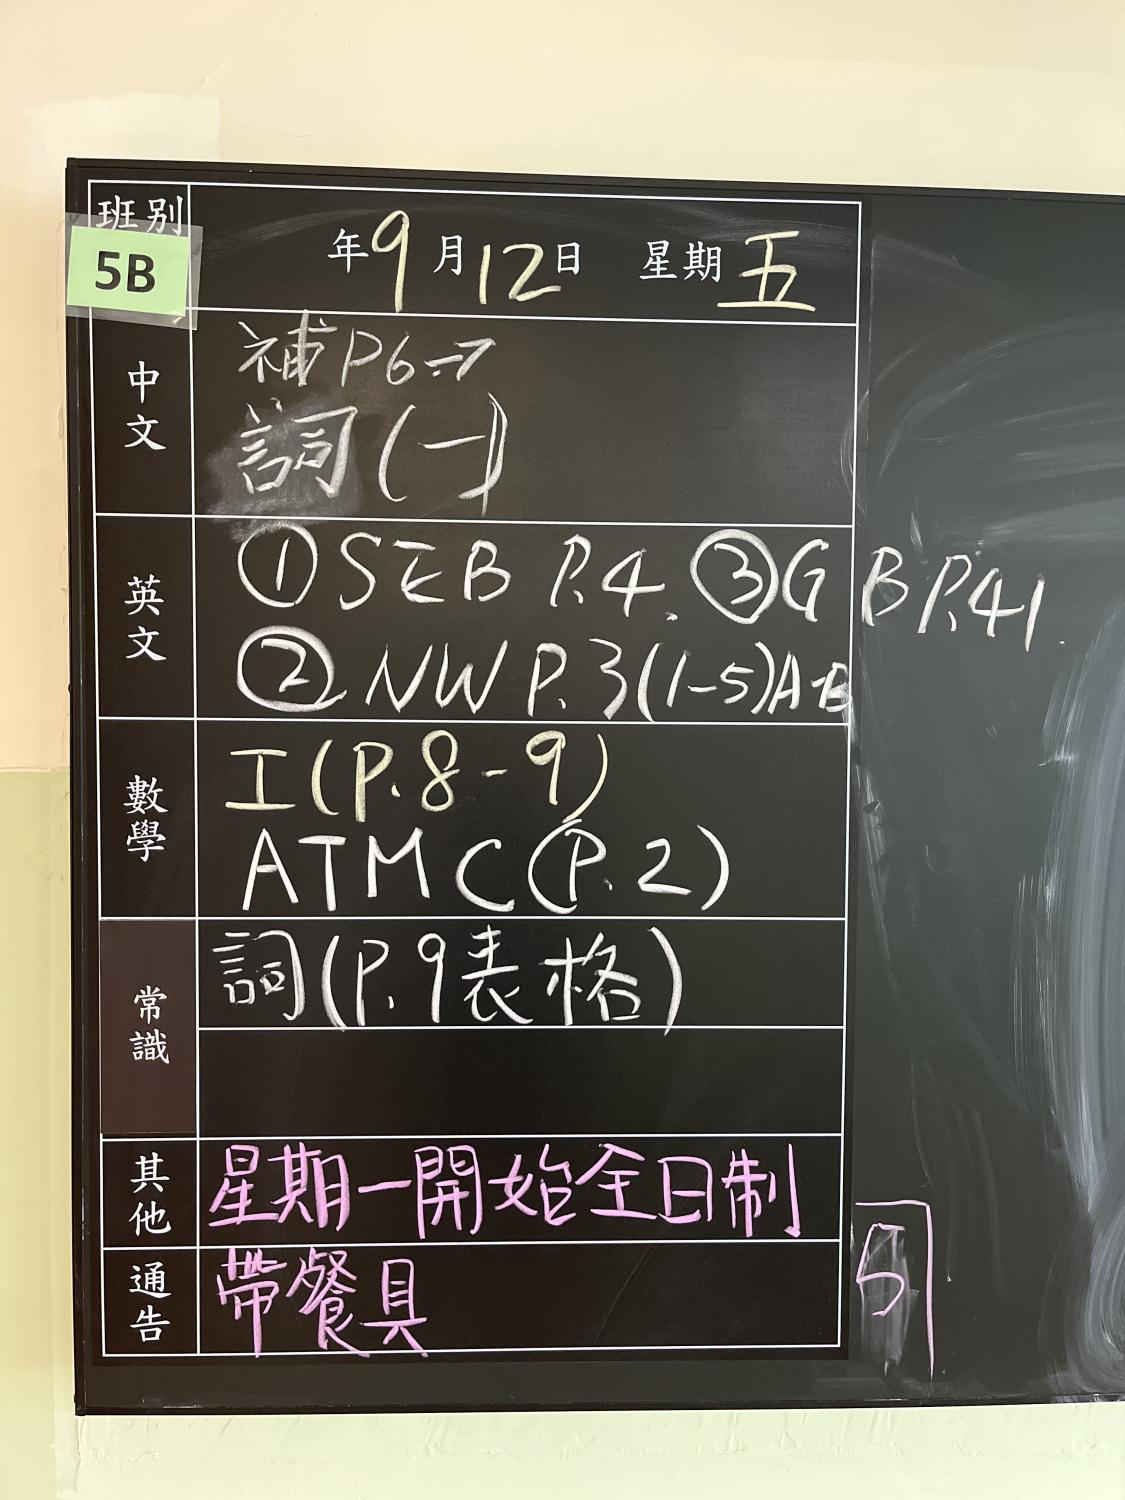 班別
5B
年9月12日 星期五
中文
補P6-7
詞(一)
英文
①SEB P.4. ③GB P.41.
②NW P.3(1-5)A-B
數學
工(P.8-9)
ATMC(P.2)
常識
詞(P.9表格)
其他
星期一開始全日制
通告
帶餐具
5